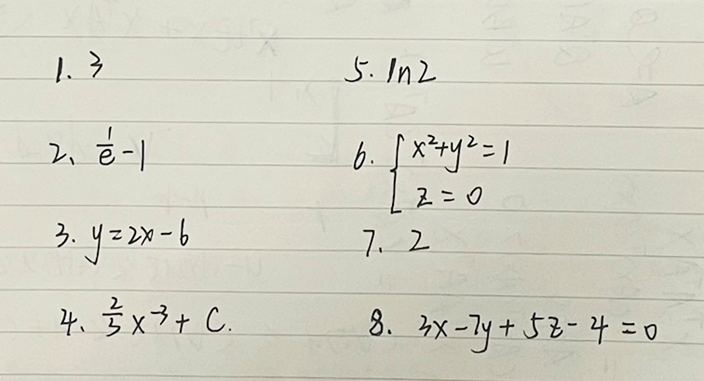 1. 3
2、 1/e - 1
3. y = 2x - 6
4、 2/3 x⁻³ + C.
5. ln2
6. { x²+y² = 1
z = 0
7. 2
8. 3x - 7y + 5z - 4 = 0